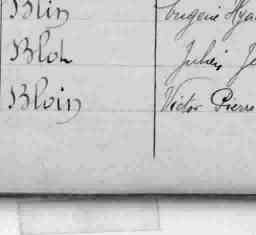 Blin Eugène Hya
Blot Julien Je
Bloin Victor Pierre